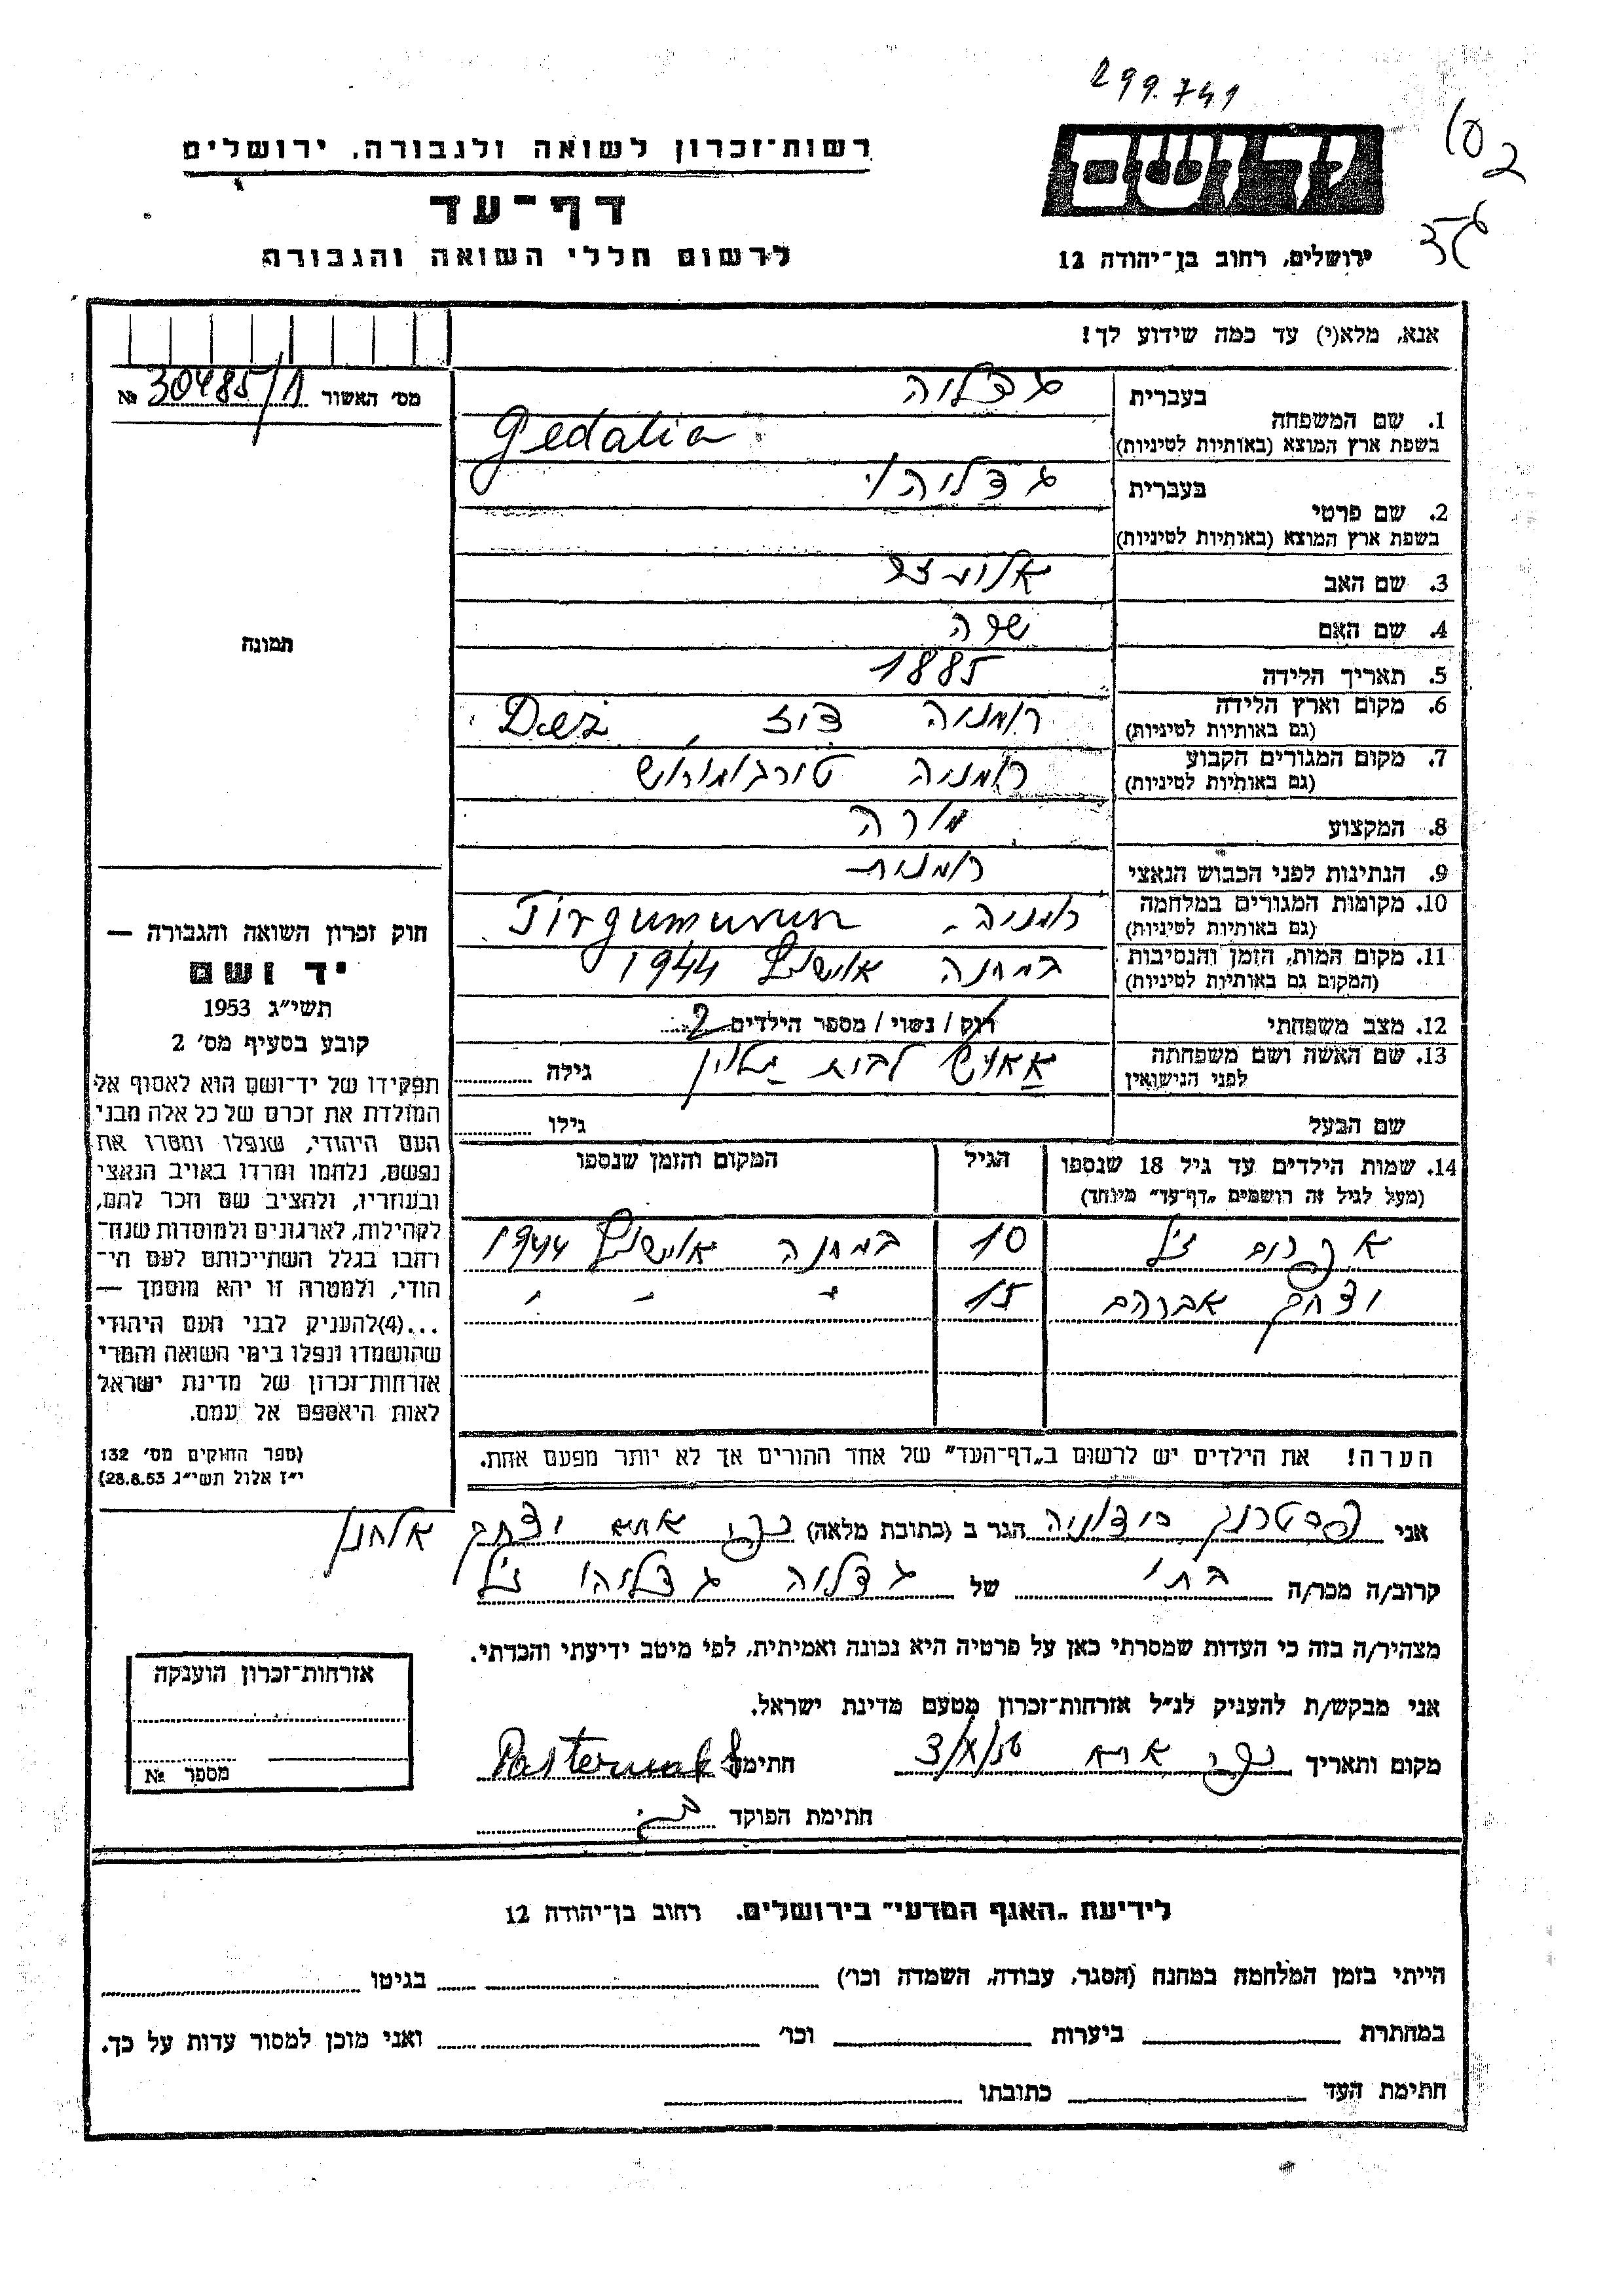 299.741
102
רשות־זכרון לשואה ולגבורה, ירושלים
דף־עד
לרשום חללי השואה והגבורה
ירושלים, רחוב בן־יהודה 12
אנא, מלא(י) עד כמה שידוע לך!
מס׳ האשור № 30485/1
1. שם המשפחה
בעברית גדליה
בשפת ארץ המוצא (באותיות לטיניות) Gedalia
2. שם פרטי
בעברית גדליהו
בשפת ארץ המוצא (באותיות לטיניות)
3. שם האב
4. שם האם שרה
5. תאריך הלידה 1885
6. מקום וארץ הלידה רומניה דיז, Dej
(גם באותיות לטיניות)
7. מקום המגורים הקבוע רומניה טורגומורוש
(גם באותיות לטיניות)
8. המקצוע מורה
9. הנתינות לפני הכבוש הנאצי רומנית
10. מקומות המגורים במלחמה רומניה. Tirgumurus
(גם באותיות לטיניות)
11. מקום המות, הזמן והנסיבות במחנה אוישוץ 1944
(המקום גם באותיות לטיניות)
12. מצב משפחתי רוק / נשוי / מספר הילדים 2
13. שם האשה ושם משפחתה לבית גילה
לפני הנישואין
שם הבעל גילו
14. שמות הילדים עד גיל 18 שנספו הגיל המקום והזמן שנספו
(מעל לגיל זה רושמים „דף־עד״ מיוחד)
אפרים ז״ל 10 במחנה אוישוץ 1944
יצחק אברהם 15 ״ ״ ״
הערה! את הילדים יש לרשום ב„דף־העד״ של אחד ההורים אך לא יותר מפעם אחת.
תמונה
חוק זכרון השואה והגבורה —
יד ושם
תשי״ג 1953
קובע בסעיף מס׳ 2
תפקידו של יד־ושם הוא לאסוף אל
המולדת את זכרם של כל אלה מבני
העם היהודי, שנפלו ומסרו את
נפשם, נלחמו ומרדו באויב הנאצי
ובעוזריו, ולהציב שם וזכר להם,
לקהילות, לארגונים ולמוסדות שנח־
רבו בגלל השתייכותם לעם הי־
הודי, ולמטרה זו יהא מוסמך —
...(4) להעניק לבני העם היהודי
שהושמדו ונפלו בימי השואה והמרי
אזרחות־זכרון של מדינת ישראל
לאות היאספם אל עמם.
(ספר החוקים מס׳ 132
י״ז אלול תשי״ג 28.8.53)
אני פסטרנק הגר ב (כתובת מלאה) יצחק אלחנן
קרוב/ה מכר/ה בתו של גדליה גדליהו ז״ל
מצהיר/ה בזה כי העדות שמסרתי כאן על פרטיה היא נכונה ואמיתית, לפי מיטב ידיעתי והכרתי.
אני מבקש/ת להעניק לנ״ל אזרחות־זכרון מטעם מדינת ישראל.
מקום ותאריך 3/X/56 חתימה Pasternak
חתימת הפוקד
אזרחות־זכרון הוענקה
מספר №
לידיעת „האגף המדעי״ בירושלים. רחוב בן־יהודה 12
הייתי בזמן המלחמה במחנה (הסגר, עבודה, השמדה וכו׳) בגיטו
במחתרת ביערות וכו׳ ואני מוכן למסור עדות על כך.
חתימת העד כתובתו